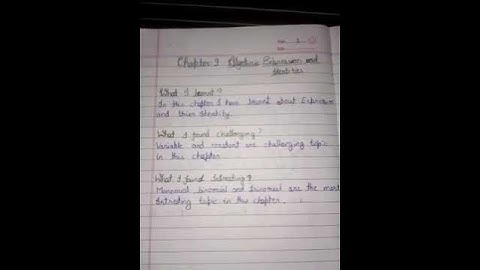 Chapter 9 Algebraic Expression and
Identities
What I learnt?
In this chapter I have learnt about Expression
and their identity.
What I found challenging?
Variable and constant are challenging topic
in this chapter
What I found intresting?
Monomial binomial and trinomial are the most
intrsting topic in this chapter.